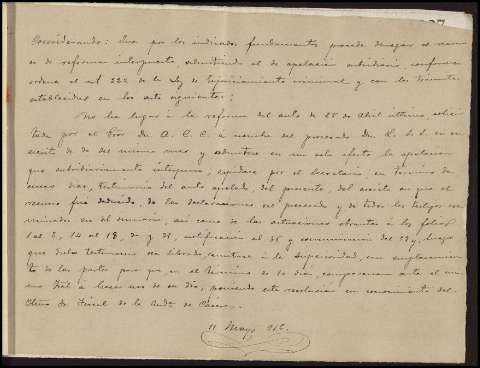 Considerando: Que por los indicados fundamentos procede denegar el recur-
so de reforma interpuesto, admitiendo el de apelacion subsidiario, conforme
ordena el art 222 de la Ley de Enjuiciamiento criminal y con los
establecidos en los arts siguientes:
No ha lugar à la reforma del auto de 25 de Abril último, solici-
tada por el Pror Dn A. C. C. à nombre del procesado Dn L. S. S. en su
escrito de 30 del mismo mes y admitese en un solo efecto la apelacion
que subsidiariamente interpuso, expidase por el Secretario, en termino de
dias, testimonio del auto apelado, del presente, del escrito en que el
recurso fué deducido, de las declaraciones del procesado y de todos los testigos exa-
minados en el sumario, asi como de las actuaciones obrantes à los folios
1 al 2, 14 al 18, y 31, notificacion al 36 y luego
que dicho testimonio sea librado, remitase à la Superioridad, con emplazamien-
to de las partes para que, en el termino de 10 dias, comparezcan ante el mis-
mo Tral à hacer uso de su dro, poniendo esta resolucion en conocimiento del
Fiscal de la Auda de
11 Mayo 916.